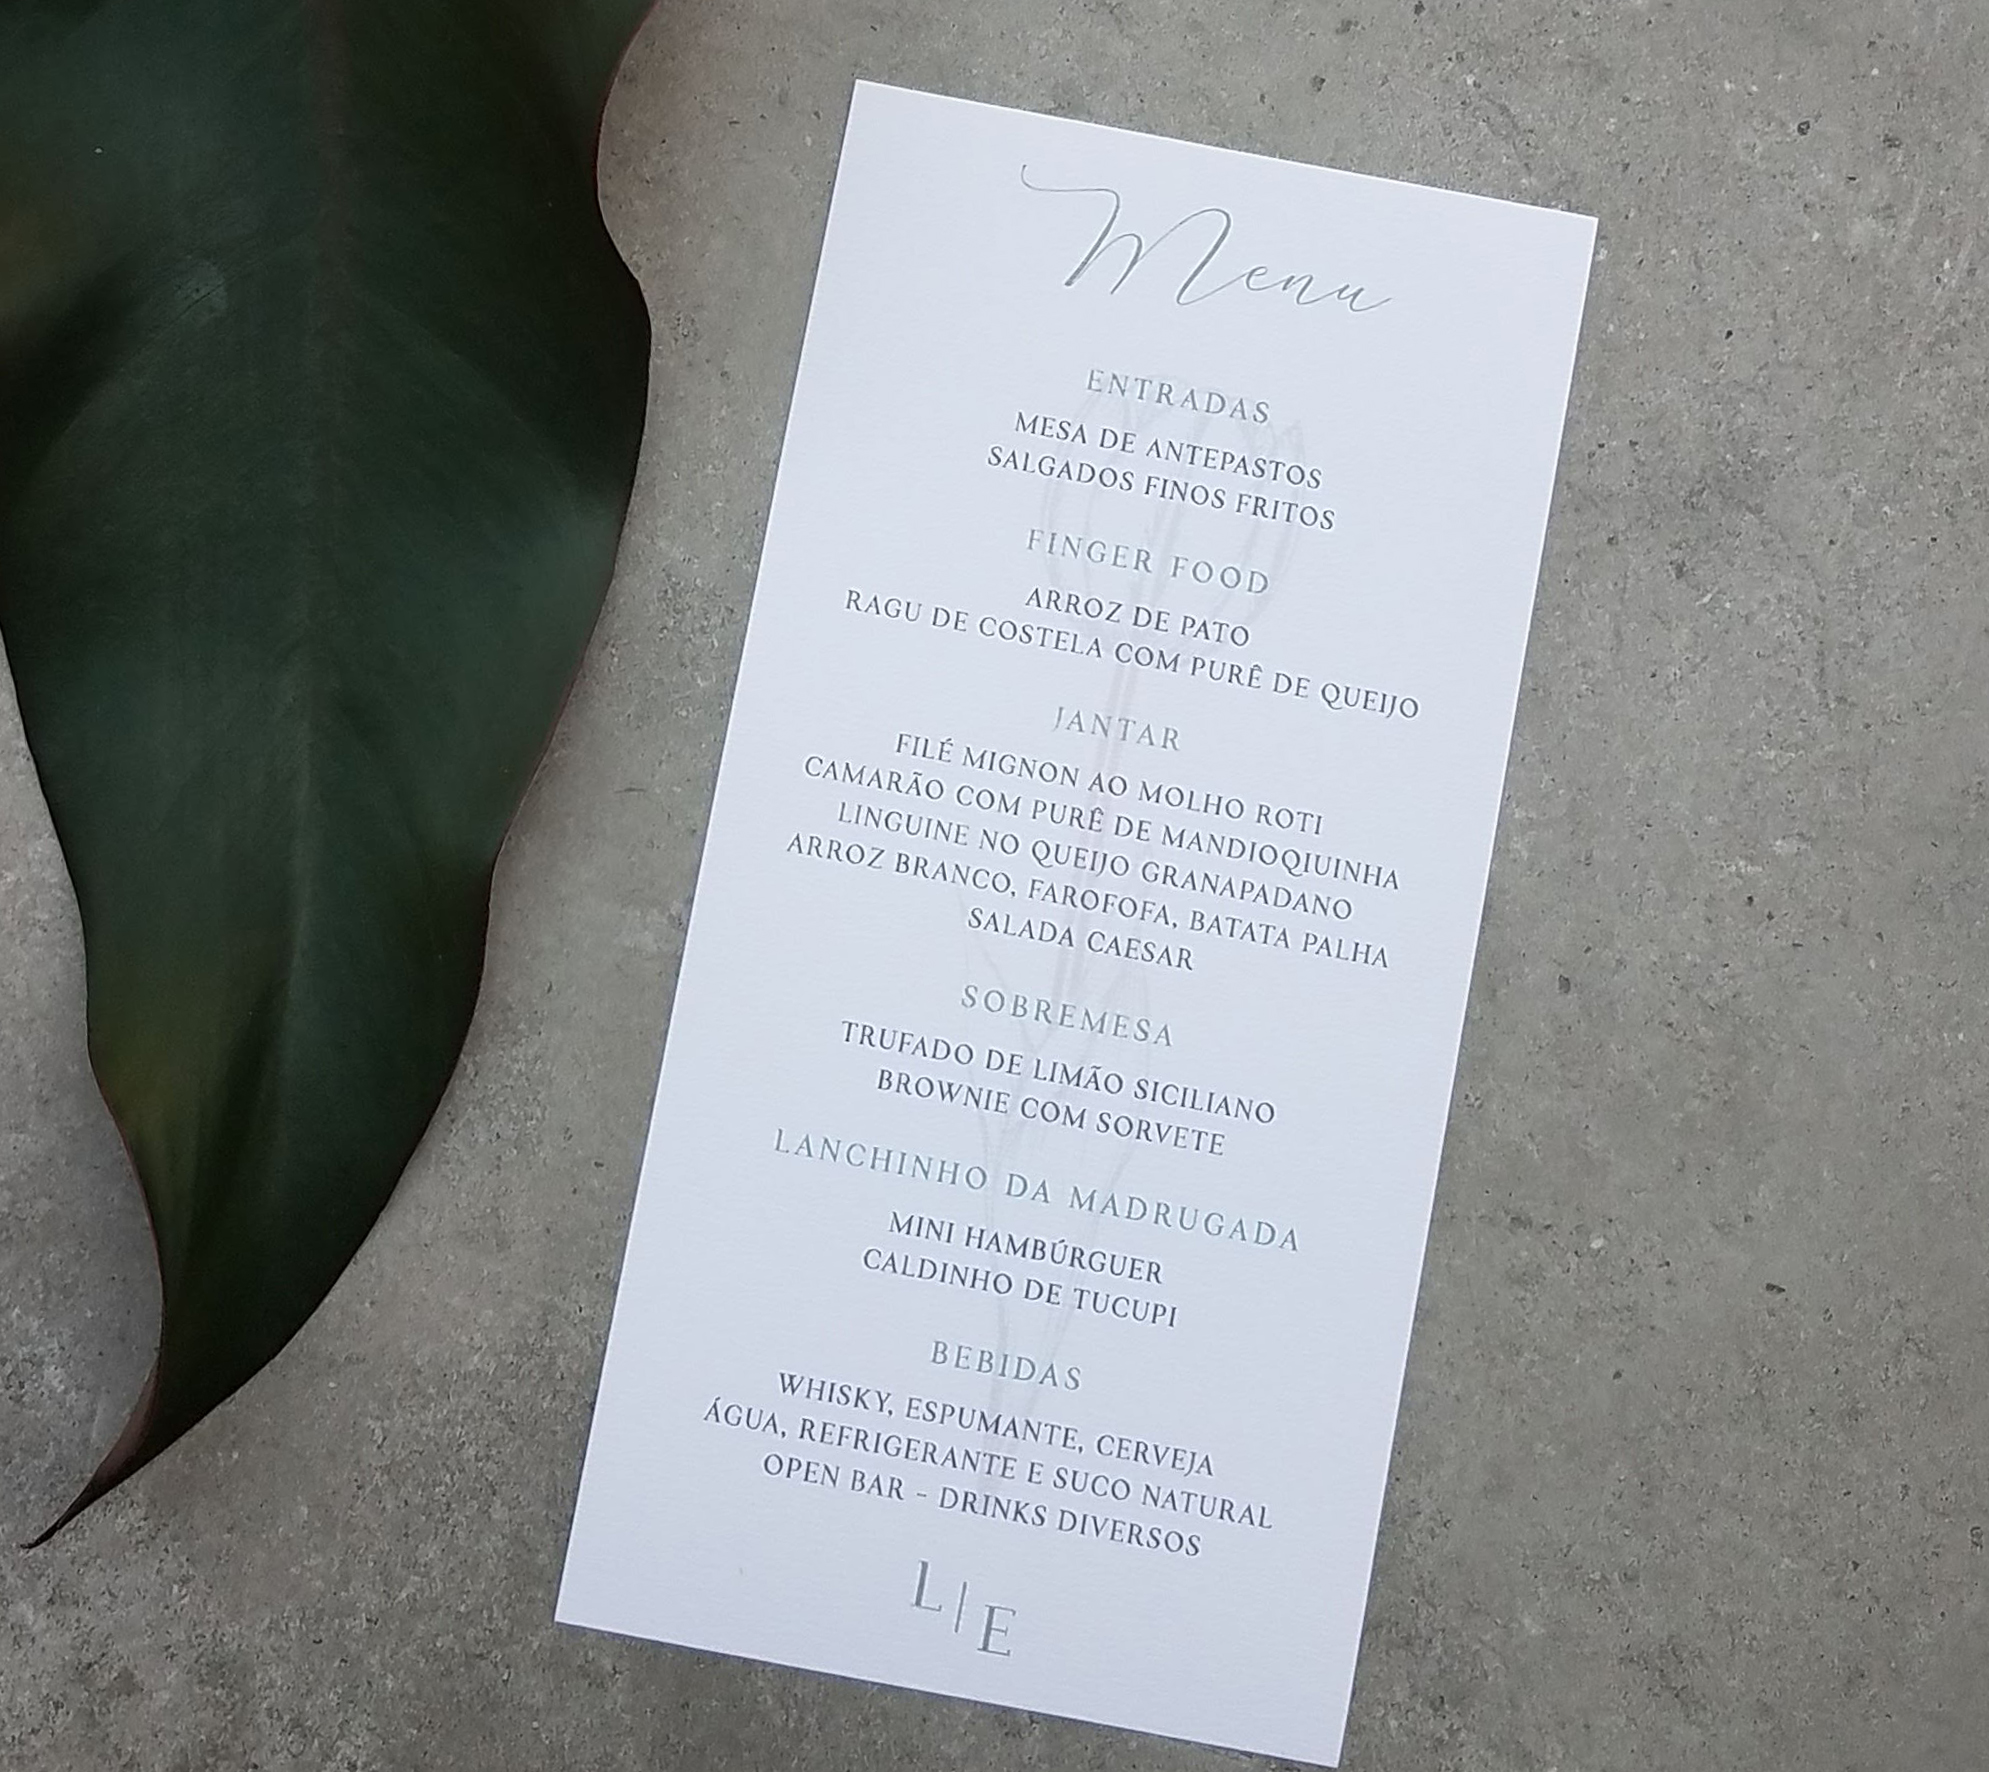 Menu
ENTRADAS
MESA DE ANTEPASTOS
SALGADOS FINOS FRITOS
FINGER FOOD
ARROZ DE PATO
RAGU DE COSTELA COM PURÊ DE QUEIJO
JANTAR
FILÉ MIGNON AO MOLHO ROTI
CAMARÃO COM PURÊ DE MANDIOQIUINHA
LINGUINE NO QUEIJO GRANAPADANO
ARROZ BRANCO, FAROFOFA, BATATA PALHA
SALADA CAESAR
SOBREMESA
TRUFADO DE LIMÃO SICILIANO
BROWNIE COM SORVETE
LANCHINHO DA MADRUGADA
MINI HAMBÚRGUER
CALDINHO DE TUCUPI
BEBIDAS
WHISKY, ESPUMANTE, CERVEJA
ÁGUA, REFRIGERANTE E SUCO NATURAL
OPEN BAR - DRINKS DIVERSOS
L|E